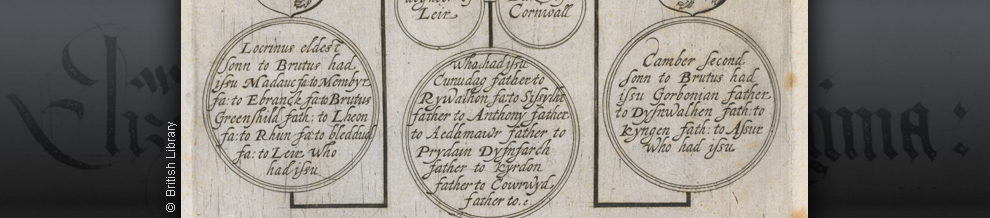 daughter of
Leir
Duke of
Cornwall
Locrinus eldest
sonn to Brutus had
issu Madauc fa: to Membyr
fa: to Ebranck fa: to Brutus
Greenshild fath: to Lheon
fa: to Rhun fa: to bleddud
fa: to Leir who
had issu
who had issu
Cunudag father to
Rywalhon fa: to Sissyllt
father to Anthony father
to Aedamawr father to
Prydain Dyfnfarch
father to kyrdon
father to Cowrwyd
father to.
Camber second
sonn to Brutus had
issu Gorbonian father
to Dyfnwalhen fath: to
kyngen fath: to Assur
who had issu
© British Library